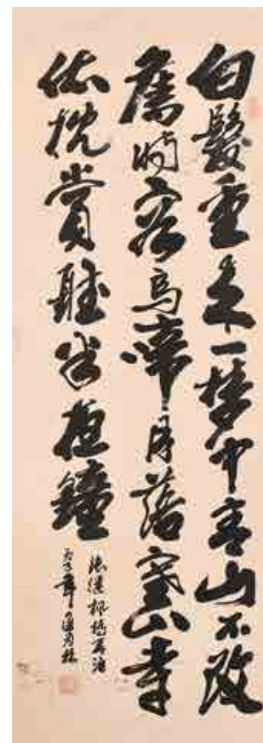 白髮重来一夢中青山不改
舊時容烏啼月落寒山寺
依枕嘗聽半夜鐘
張繼楓橋再泊